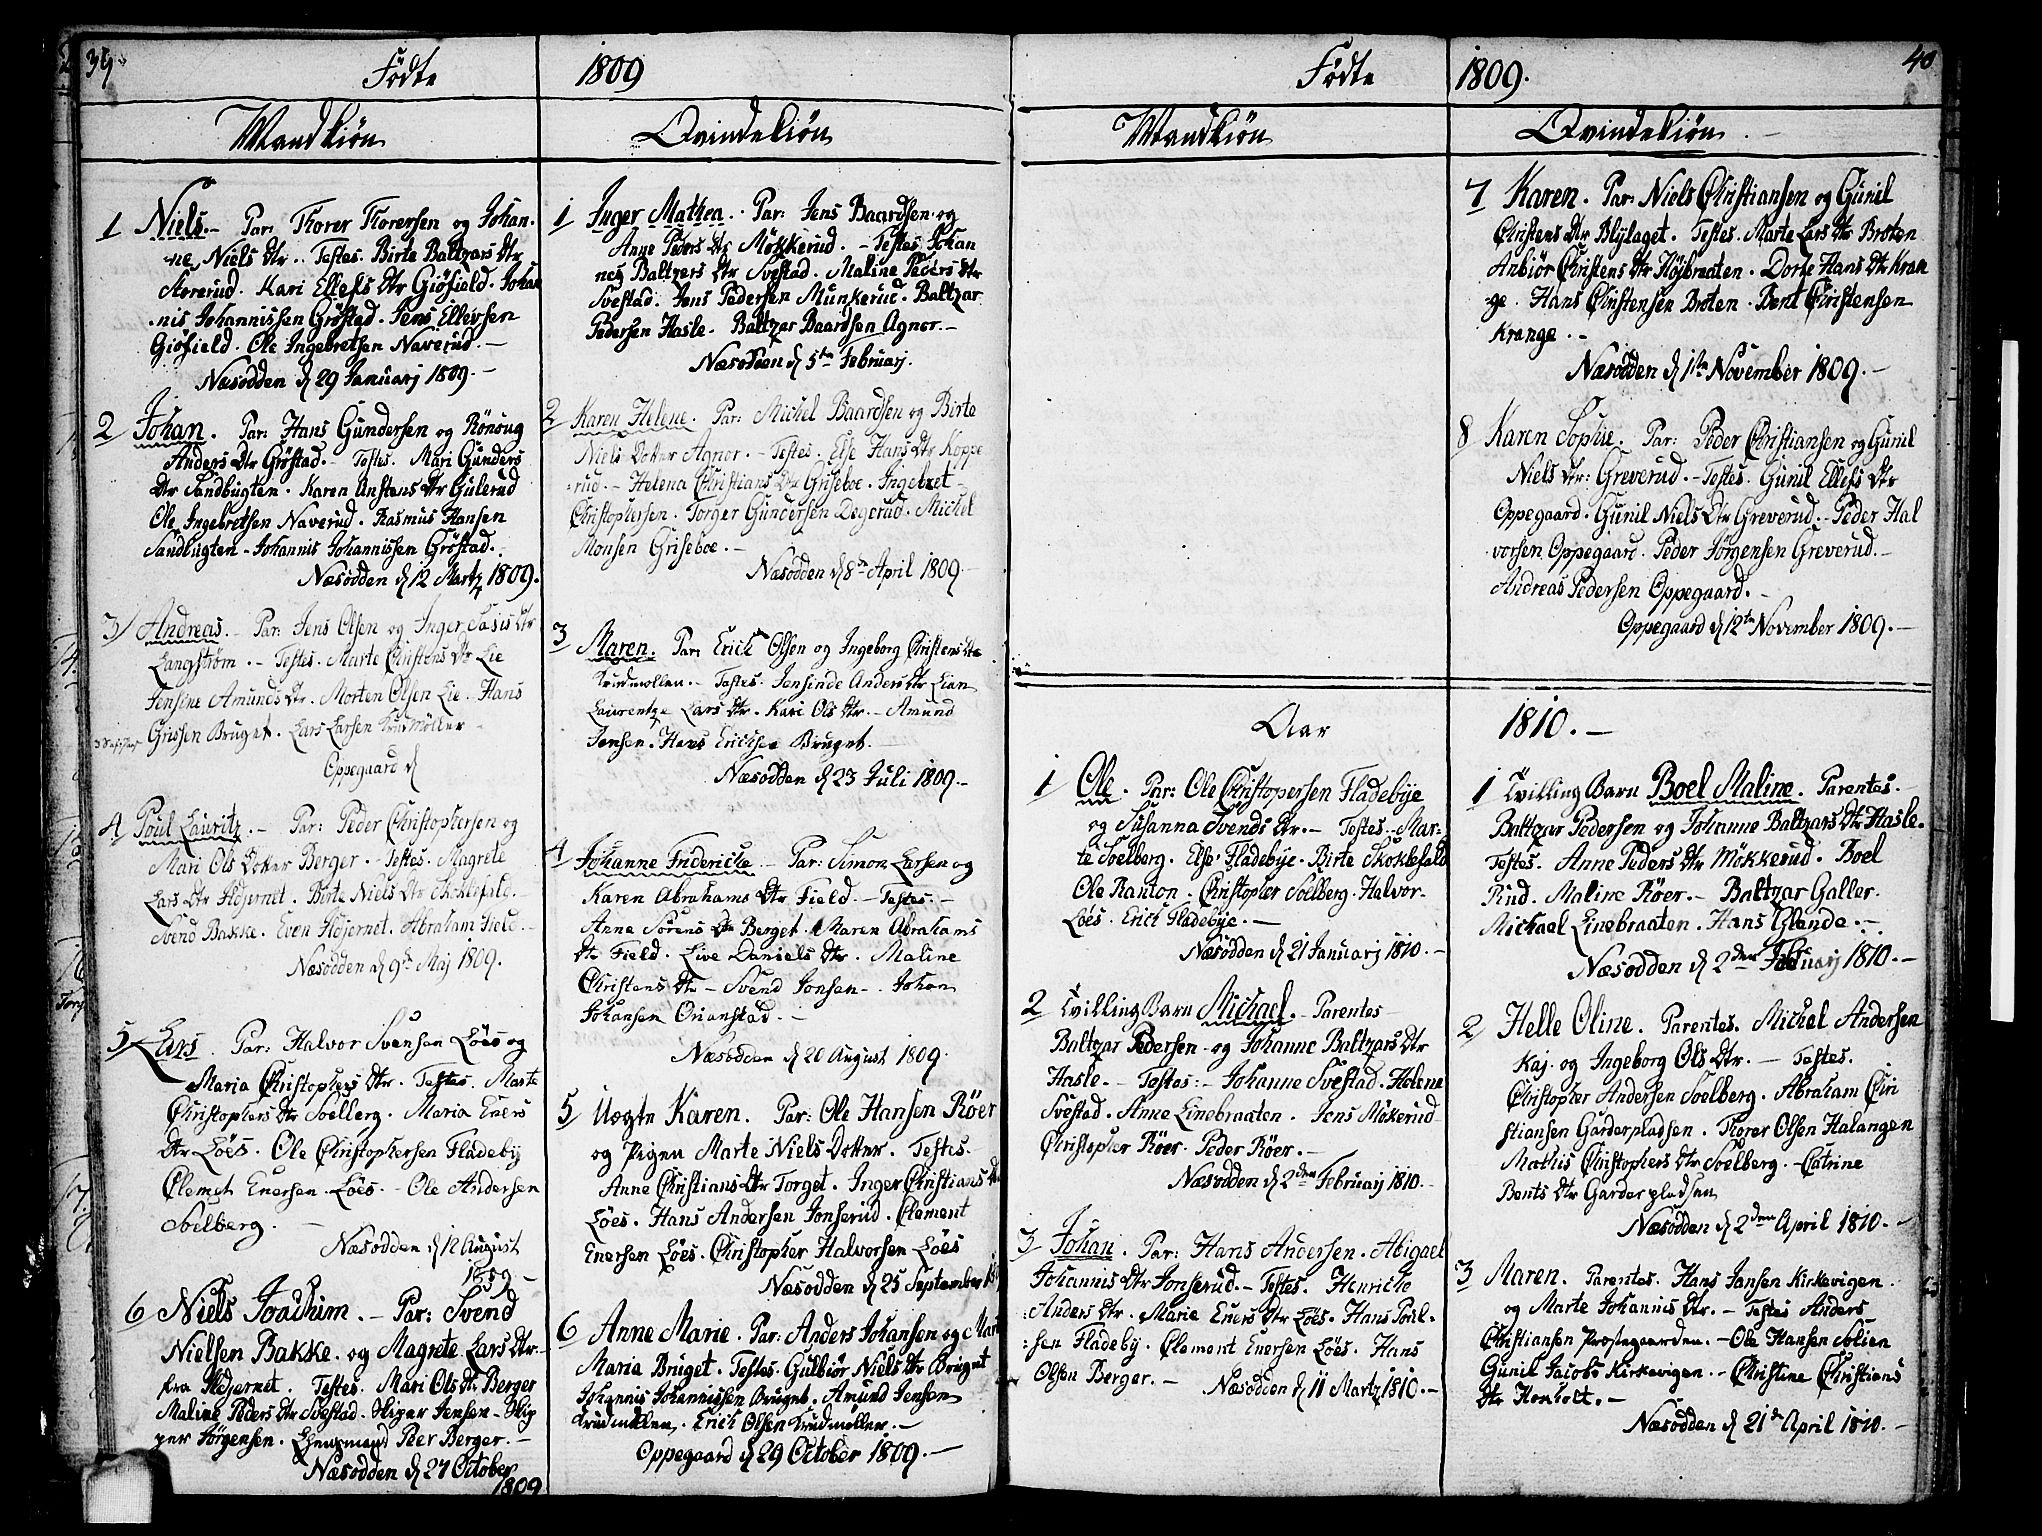 39
Födte
1809
Mandkiön
Qvindekiön
1 Niels. Par: Torer Torersen og Johan-
ne Niels Dtr. Testes. Birte Baltzars Dtr
Kari Ellefs Dtr Giöfield. Johan
nis Johannissen Gröstad. Jens Ellevsen
Giöfield. Ole Ingebretsen Naverud.
Næsodden d 29 Januarj 1809.
2 Johan. Par: Hans Gundersen og Rönoug
Anders Dtr Gröstad. Testes. Mari Gunders
Dtr Sandbugten. Karen Anstens Dtr Gulerud
Ole Ingebretsen Naverud. Rasmus Hansen
Sandbugten. Johannis Johannissen Gröstad.
Næsodden d 12 Martz 1809.
3 Andreas. Par: Jens Olsen og Inger Dtr
Langström. Testes. Marte Christens Dtr Lie
Jensine Amunds Dtr. Morten Olsen Lie. Hans
Grissen Bruget. Lars Larsen Krudmöller
Oppegaard d
4 Poul Lauritz. Par: Peder Christophersen og
Mari Ols Dotter Berger. Testes. Magrete
Lars Dtr Hdjernet. Birte Niels Dtr Skoklefald.
Svend Bakke. Even Hdjernet. Abraham Field.
Næsodden d 9de Maj 1809.
5 Lars. Par: Halvor Svensen Löes og
Maria Christophers Dtr. Testes. Marte
Christophers Dtr Soelberg. Maria Eners
Dtr Löes. Ole Christophersen Fladeby
Clemet Enersen Löes. Ole Andersen
Soelberg.
Næsodden d 12 August
1809
6 Niels Joachim. Par: Svend
Nielsen Bakke og Magrete Lars Dtr
fra Hdjernet. Testes. Mari Ols Dt Berger
Maline Peders Dtr Svestad. Jensen
Jörgensen. Peer Berger.
Næsodden d 27 October
1809
1 Inger Mathea. Par: Jens Baardsen og
Anne Peders Dtr Mökkerud. Testes Johan
ne Baltzers Dtr Svestad. Maline Peders Dtr
Svestad. Jens Pedersen Munkerud. Baltzar
Pedersen Hasle. Baltzar Baardsen Agnor.
Næsodden d 5te Februarj.
2 Karen Helene. Par: Michel Baardsen og Birte
Niels Dotter Agnor. Testes. Else Hans Dtr Koppe
rud. Helena Christians Dtr Griseboe. Ingebret
Christophersen. Torger Gundersen Degerud. Michel
Monsen Griseboe.
Næsodden d 8de April 1809
3 Maren. Par: Erick Olsen og Ingeborg Christens Dtr
Krudmollen. Testes. Jensinde Anders Dtr Lian
Laurentze Lars Dtr. Kari Ols Dtr. Amund
Jensen. Hans Ericksen Bruget.
Næsodden d 23 Juli 1809.
4 Johanne Fridericke. Par: Simon Larsen og
Karen Abrahams Dtr Field. Testes.
Anne Sörens Dtr Berget. Maren Abrahams
Dtr Field. Live Daniels Dtr. Maline
Christens Dtr. Svend Jonsen. Johan
Johansen
Næsodden d 20 August 1809.
5 Uægte Karen. Par: Ole Hansen Röer
og Pigen Marte Niels Dotter. Testes.
Anne Christians Dtr Torget. Inger Christians Dtr
Löes. Hans Andersen Jonserud. Clement
Enersen Löes. Christopher Halvorsen Löes
Næsodden d 25 September
6 Anne Marie. Par: Anders Johansen og
Maria Bruget. Testes. Gulbiör Niels Dtr Bruget
Johannis Johannissen Bruget. Amund Jensen
Krudmøllen. Erick Olsen Krudmoller.
Oppegaard d 29 October 1809.
40
Födte
1809.
Mandkiön
Qvindekiön
7 Karen. Par: Niels Christiansen og Gunil
Christens Dtr Blylaget. Testes. Marte Lars Dtr Broten
Anbiör Christens Dtr Höjbraaten. Dorte Hans Dtr Kran
ge. Hans Christensen Broten. Bent Christensen
Krange.
Næsodden d 1te November 1809.
8 Karen Sophie. Par: Peder Christiansen og Gunil
Niels Dtr: Greverud. Testes. Gunil Ellefs Dtr
Oppegaard. Gunil Niels Dtr Greverud. Peder Hal
vorsen Oppegaard. Peder Jörgensen Greverud.
Andreas Pedersen Oppegaard.
Oppegaard d 12te November 1809.
Aar
1810.
1 Ole. Par: Ole Christopersen Fladebije
og Susanna Svends Dtr. Testes. Mar-
te Soelberg. Else Fladebije. Birte Skoklefald
Ole Ranton. Christopher Soelberg. Halvor
Löes. Erick Fladebije.
Næsodden d 21 Januarj 1810.
2 Tvilling Barn Michael. Parentes
Baltzar Pedersen og Johanne Baltzars Dtr
Hasle. Testes: Johanne Svestad. Helene
Svestad. Anne Linebraaten. Jens Mökerud
Christopher Röer. Peder Röer.
Næsodden d 2den Februarj 1810.
3 Johan. Par: Hans Andersen. Abigael
Johannis Dtr Jonserud. Testes. Henricke
Anders Dtr. Marie Eners Dtr Löes. Hans Poul-
sen Fladeby. Clement Enersen Löes. Hans
Olsen Berger.
Næsodden d 11 Martz 1810.
1 Tvilling Barn Boel Maline. Parentes.
Baltzar Pedersen og Johanne Baltzars Dtr Hasle.
Testes. Anne Peders Dtr Mökkerud. Boel
Rud. Maline Röer. Baltzar Galler.
Michael Linebraaten. Hans Glende.
Næsodden d 2den Februarj 1810.
2 Helle Oline. Parentes. Michel Andersen
Kaj. og Ingeborg Ols Dtr. Testes.
Christopher Andersen Soelberg. Abraham Chri
stiansen Garderpladsen. Torer Olsen Halangen
Mathis Christophers Dtr Soelberg. Catrine
Bents Dtr Garderpladsen
Næsodden d 2den April 1810.
3 Maren. Parentes. Hans Jansen Kirkevigen.
og Marte Johannis Dtr. Testes Anders
Christiansen Prostegaarden. Ole Hansen Solien
Gunil Jacobs Kirkevigen. Christine Christians
Dtr Konholt.
Næsodden d 21de April 1810.